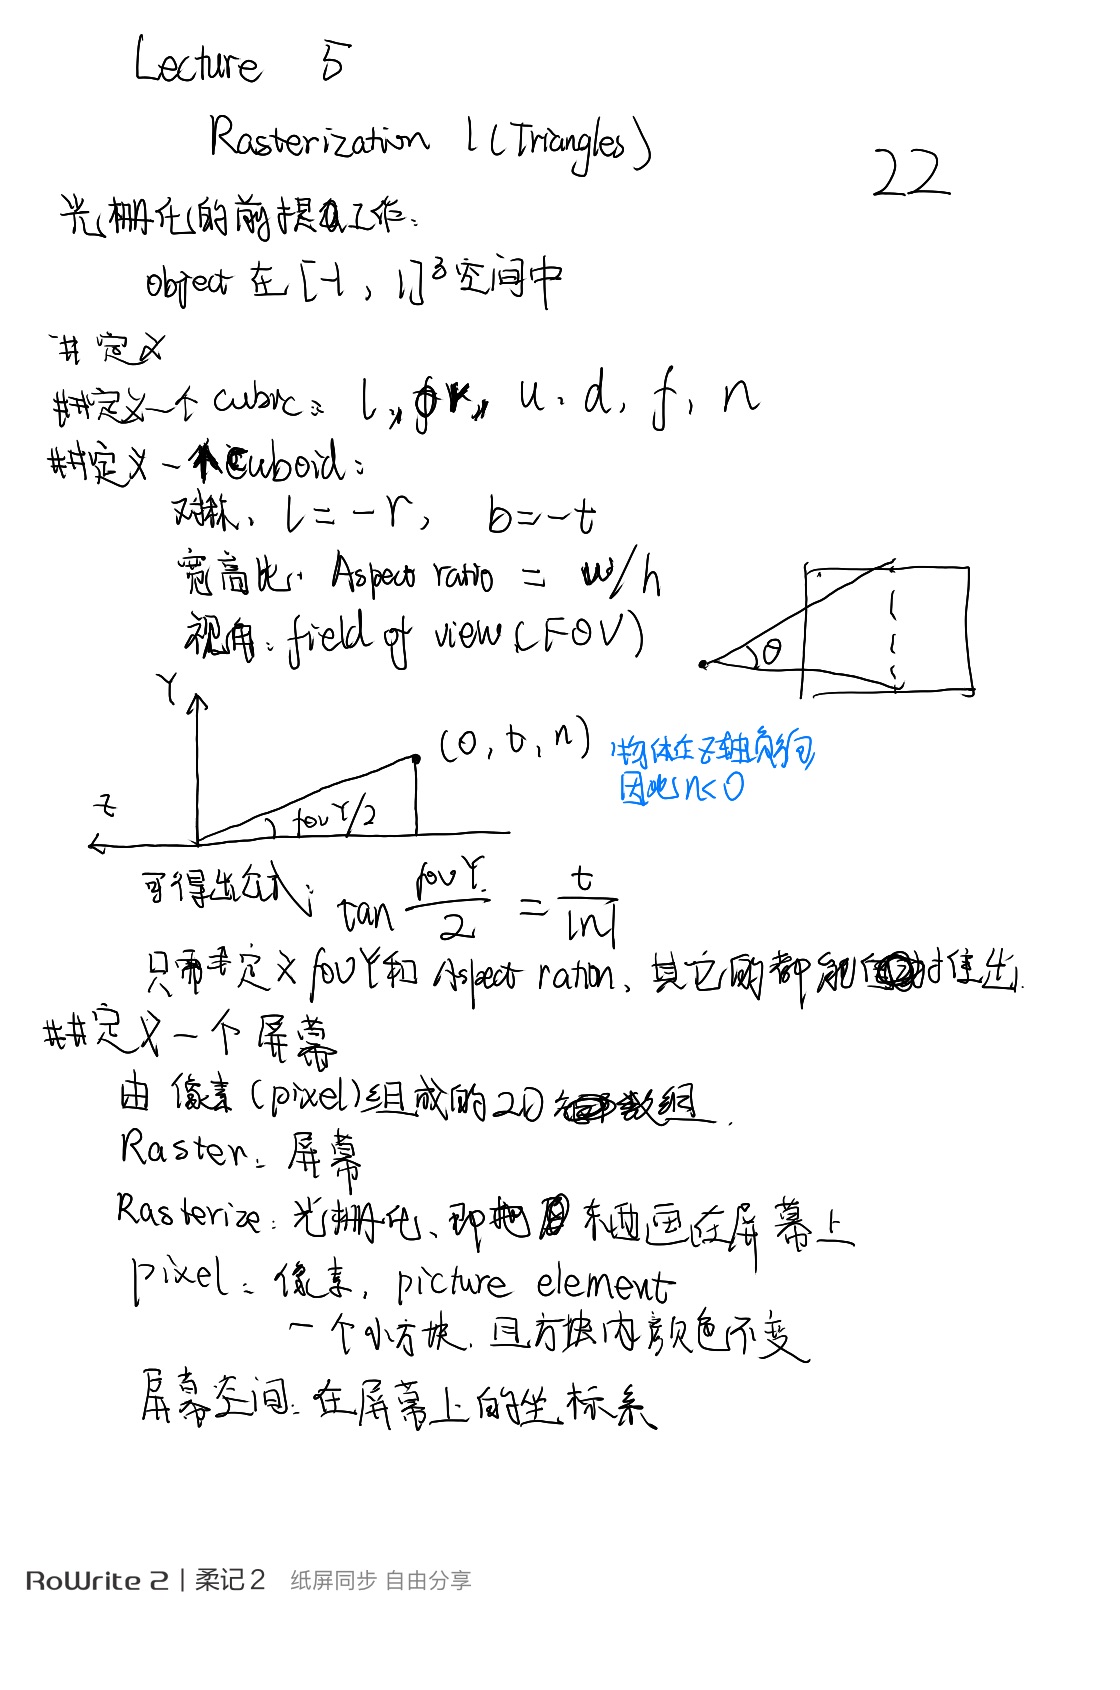 Lecture 5
Rasterization 1 (Triangles)
22
光栅化的前提工作:
object 在 [-1, 1]³ 空间中
# 定义
## 定义一个 cubic: l, r, u, d, f, n
## 定义一个 cuboid:
对称、l = -r, b = -t
宽高比: Aspect ratio = w/h
视角: field of view (FOV)
θ
Y
(0, t, n)
物体在Z轴负方向
因此 n<0
z
fovY/2
可得出公式: tan fovY/2 = t/|n|
只需要定义 fovY和 Aspect ration、其它的都能推出.
## 定义一个屏幕
由像素(pixel)组成的2D数组.
Raster: 屏幕
Rasterize: 光栅化、即把东西画在屏幕上
pixel: 像素, picture element
一个小方块. 且方块内颜色不变
屏幕空间: 在屏幕上的坐标系
RoWrite 2 | 柔记 2 纸屏同步 自由分享